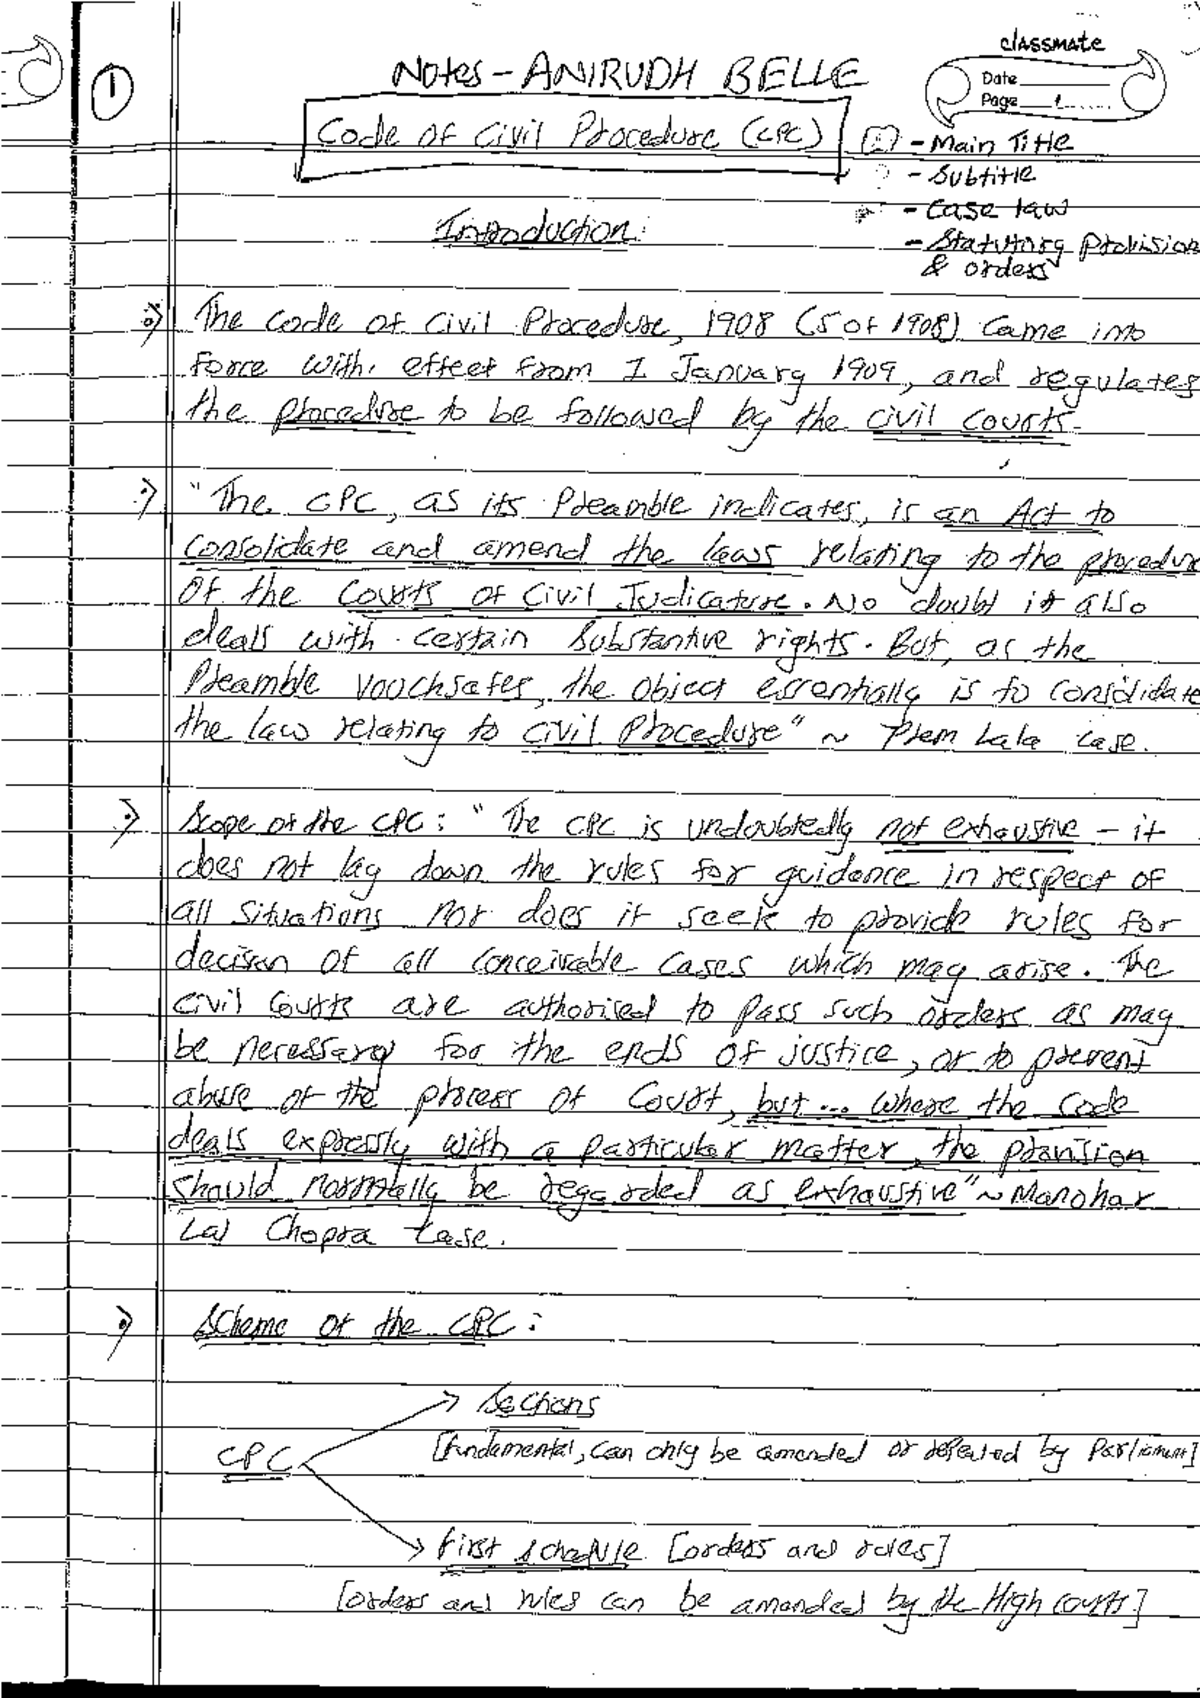 classmate
Date
Page 1
①
Notes - ANIRUDH BELLE
Code of Civil Procedure (CPC)
- Main Title
- Subtitle
- Case law
- Statutory Provision
& orders
Introduction:
The Code of Civil Procedure, 1908 (5 of 1908) came into
force with effect from 1 January 1909, and regulates
the procedure to be followed by the civil courts.
"The CPC, as its Preamble indicates, is an Act to
consolidate and amend the laws relating to the procedure
of the Courts of Civil Judicature. No doubt it also
deals with certain substantive rights. But, as the
Preamble vouchsafes, the object essentially is to consolidate
the law relating to civil procedure" ~ Prem Lala case.
Scope of the CPC: "The CPC is undoubtedly not exhaustive - it
does not lay down the rules for guidance in respect of
all situations nor does it seek to provide rules for
decision of all conceivable cases which may arise. The
civil Courts are authorised to pass such orders as may
be necessary for the ends of justice, or to prevent
abuse of the process of Court, but ... where the Code
deals expressly with a particular matter, the provision
should normally be regarded as exhaustive" ~ Manohar
Lal Chopra Case.
Scheme of the CPC:
Sections
CPC
[Fundamental, can only be amended or repealed by Parliament]
First schedule [orders and rules]
[orders and rules can be amended by the High Courts]